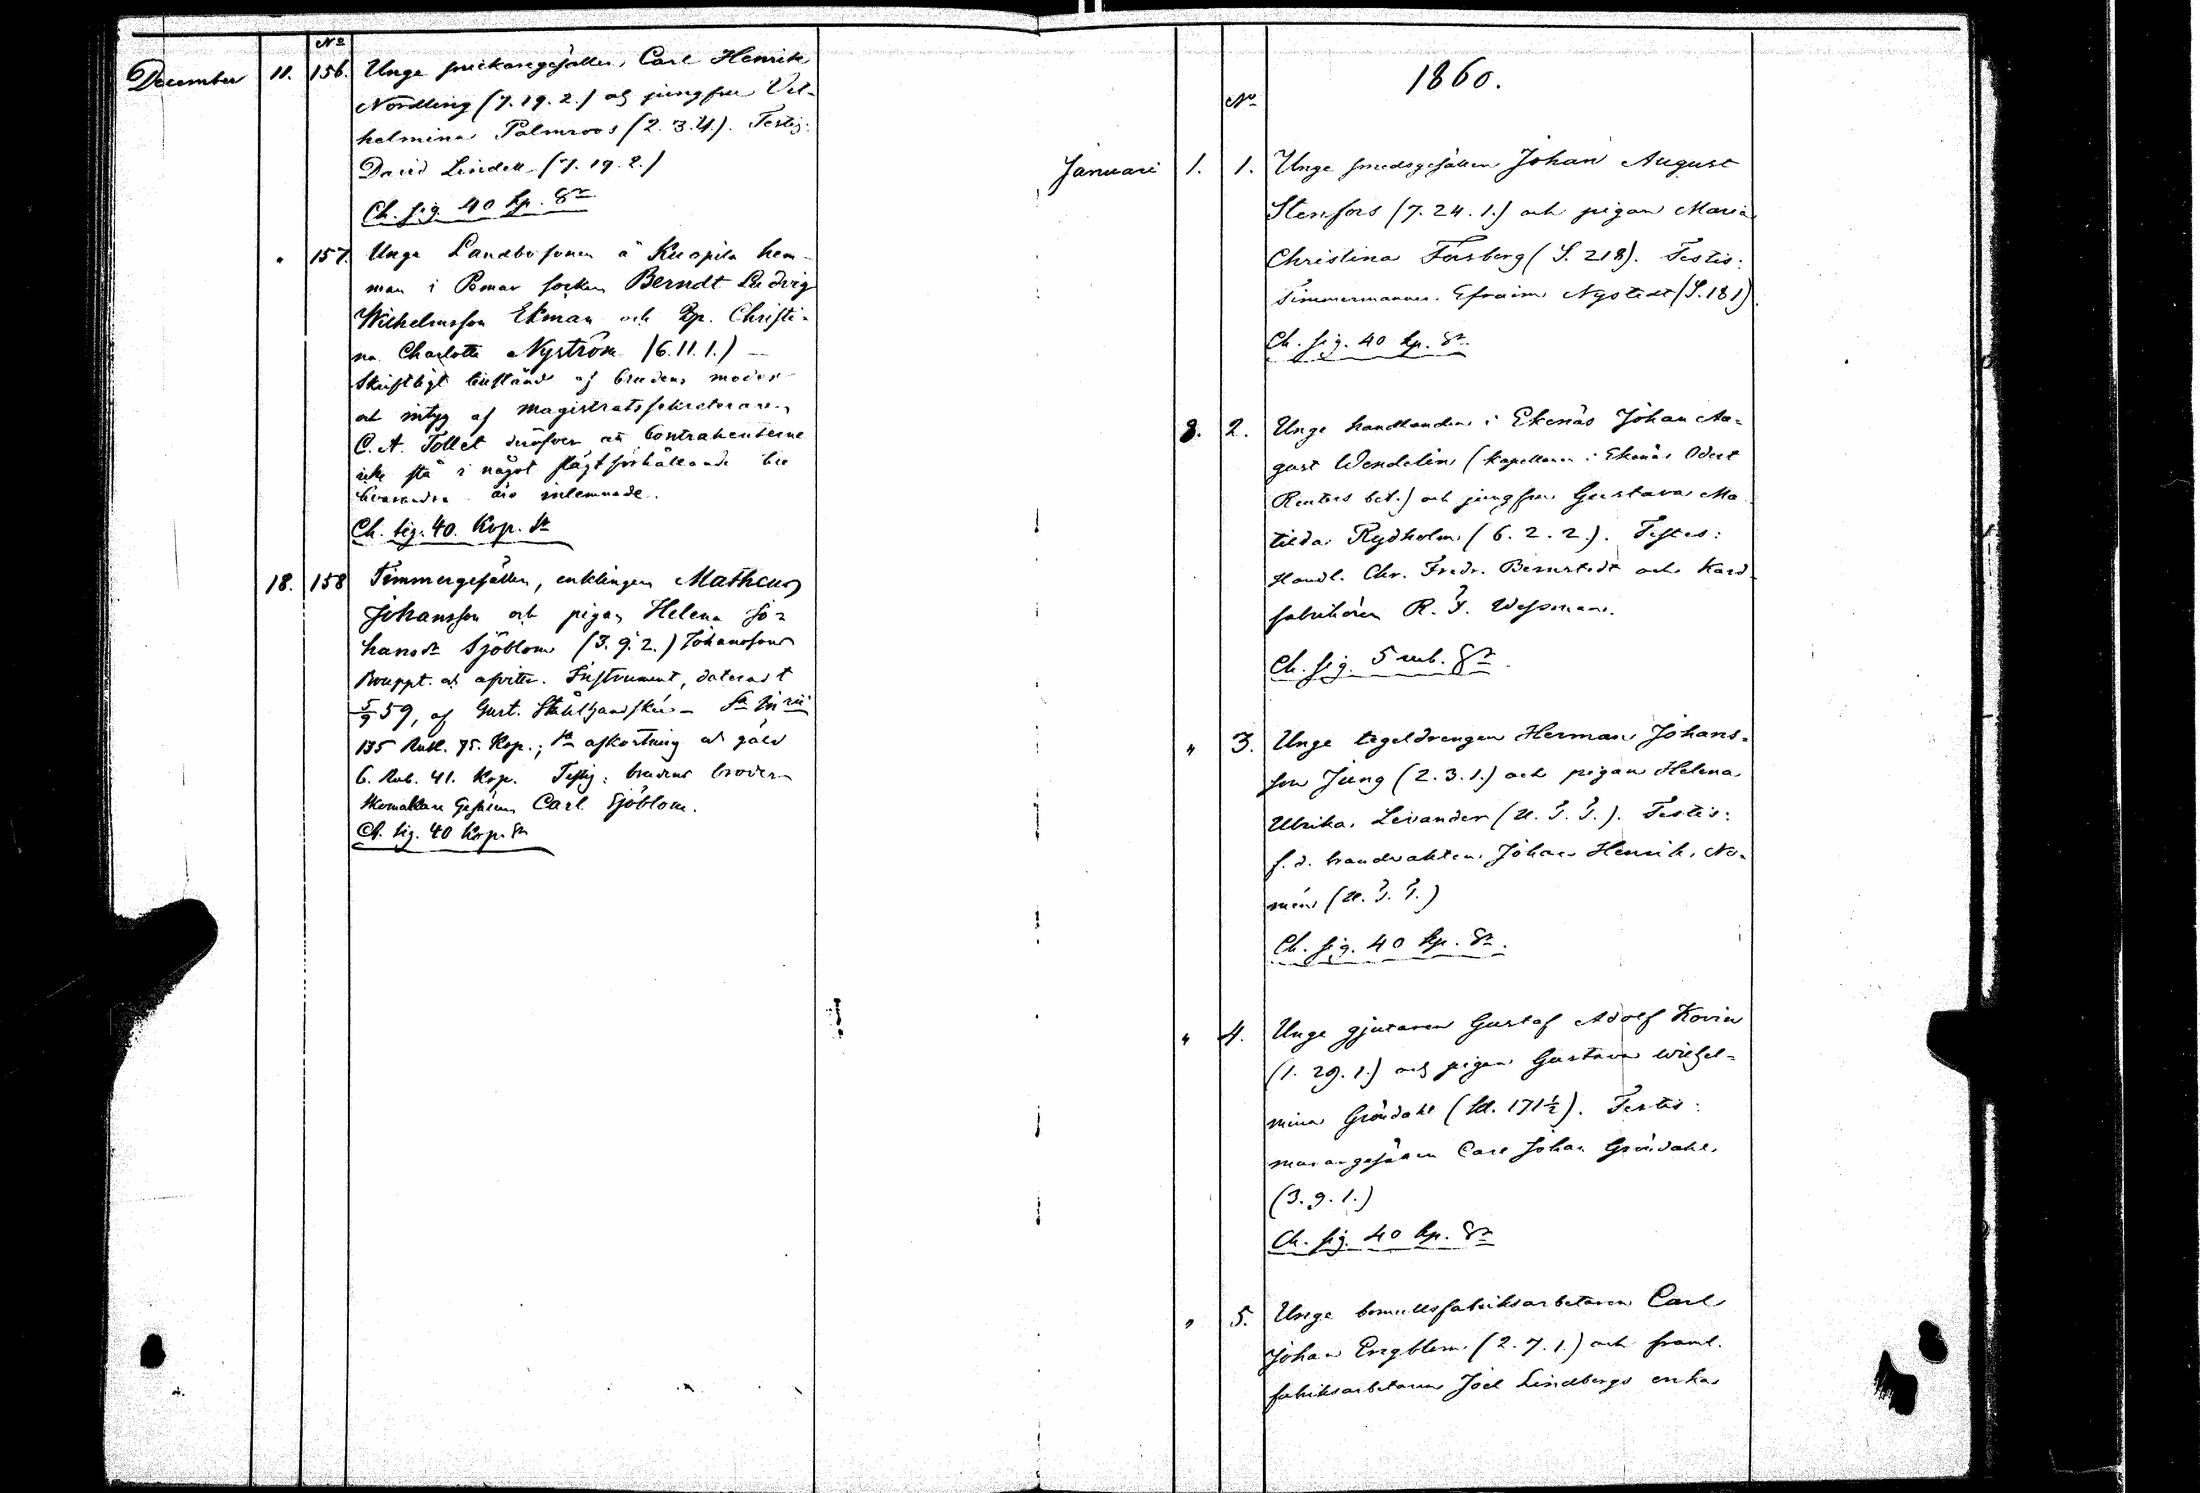 No
December 11. 156. Unge snickaregesällen Carl Henrik
Nordling (7.19.2.) och jungfru Vil-
helmina Palmroos (2.3.4.). Testis:
David Lindell (7.19.2.)
Ch. sig. 40 kp. Sr
" 157. Unge Landbosonen å Kuopila hem-
man i Pemar socken Berndt Ludvig
Wilhelmsson Ekman och Christi-
na Charlotta Nyström (6.11.1.) —
Skriftligt af brudens moder
och intyg af magistratssekreteraren
C. A. Tollet deröfver att Contrahenterne
icke stå i något slägtförhållande till
hvarandra äro inlemnade.
Ch. sig. 40. Kop. Sr
18. 158 Timmergesällen, enklingen Matheus
Johansson och pigan Helena Jo-
hansdr Sjöblom (3.9.2.) Johanssons
Bouppt. och afvittr. Instrument, dateradt
5/9 59, af Gust.
135 Rubl. 75. Kop.; afkortning och gäld
6. Rub. 41. Kop. Testis: brudens broder
Skomakare Gesällen Carl Sjöblom.
Ch. sig. 40 Kop. Sr
1860.
No
Januari 1. 1. Unge smedsgesällen Johan August
Stenfors (7.24.1.) och pigan Maria
Christina Forsberg (S. 218). Testis:
Timmermannen Efraim Nystedt (S. 181).
Ch. sig. 40 kp. Sr
8. 2. Unge handlanden i Ekenäs Johan Au-
gust Wendelin (kapellanen i Ekenäs Odert
Reuters bet.) och jungfru Gustava Ma-
tilda Rydholm (6.2.2.). Testes:
Handl. Chr. Fredr. Bernstedt och Kard-
fabrikören R. I. Wessman.
Ch. sig. 5 rub. Sr
" 3. Unge tegeldrengen Herman Johans-
son Jung (2.3.1.) och pigan Helena
Ulrika Levander (U. I. I.). Testis:
f. d. brandvakten Johan Henrik No-
mén (U. I. I.)
Ch. sig. 40 kp. Sr.
" 4. Unge gjutaren Gustaf Adolf Kovin
(1.29.1.) och pigan Gustava Wilhel-
mina Gröndahl (Ll. 171½). Testis:
muraregesällen Carl Johan Gröndahl
(3.9.1.)
Ch. sig. 40 kp. Sr
" 5. Unge bomullsfabriksarbetaren Carl
Johan Engblom (2.7.1.) och framl.
fabriksarbetaren Joel Lindbergs enka